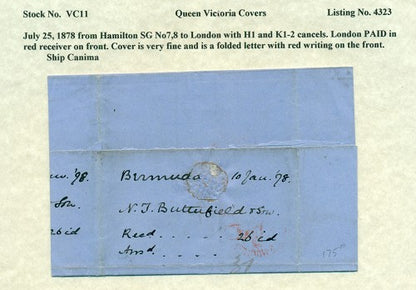 Stock No. VC11 Queen Victoria Covers Listing No. 4323
July 25, 1878 from Hamilton SG No7,8 to London with H1 and K1-2 cancels. London PAID in
red receiver on front. Cover is very fine and is a folded letter with red writing on the front.
Ship Canima
'98. Bermuda 10 Jan. '98.
Son. N. T. Butterfield & Son.
26 id Recd . . . . . 26 id
Ansd . . . . .
175